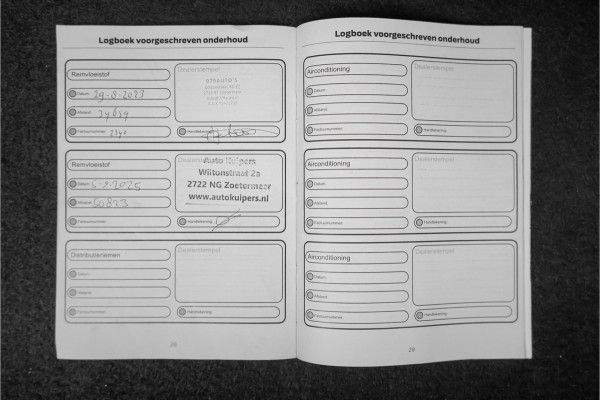 Logboek voorgeschreven onderhoud
Remvloeistof
Dealerstempel
Datum 29-8-2023
Afstand
Factuurnummer
Handtekening
Remvloeistof
Dealerstempel
Datum 5-2-2025
Afstand
Factuurnummer
Auto Kuipers
Wiltonstraat 2a
2722 NG Zoetermeer
www.autokuipers.nl
Handtekening
Distributieriemen
Dealerstempel
Datum
Afstand
Factuurnummer
Handtekening
28
Logboek voorgeschreven onderhoud
Airconditioning
Dealerstempel
Datum
Afstand
Factuurnummer
Handtekening
Airconditioning
Dealerstempel
Datum
Afstand
Factuurnummer
Handtekening
Airconditioning
Dealerstempel
Datum
Afstand
Factuurnummer
Handtekening
29